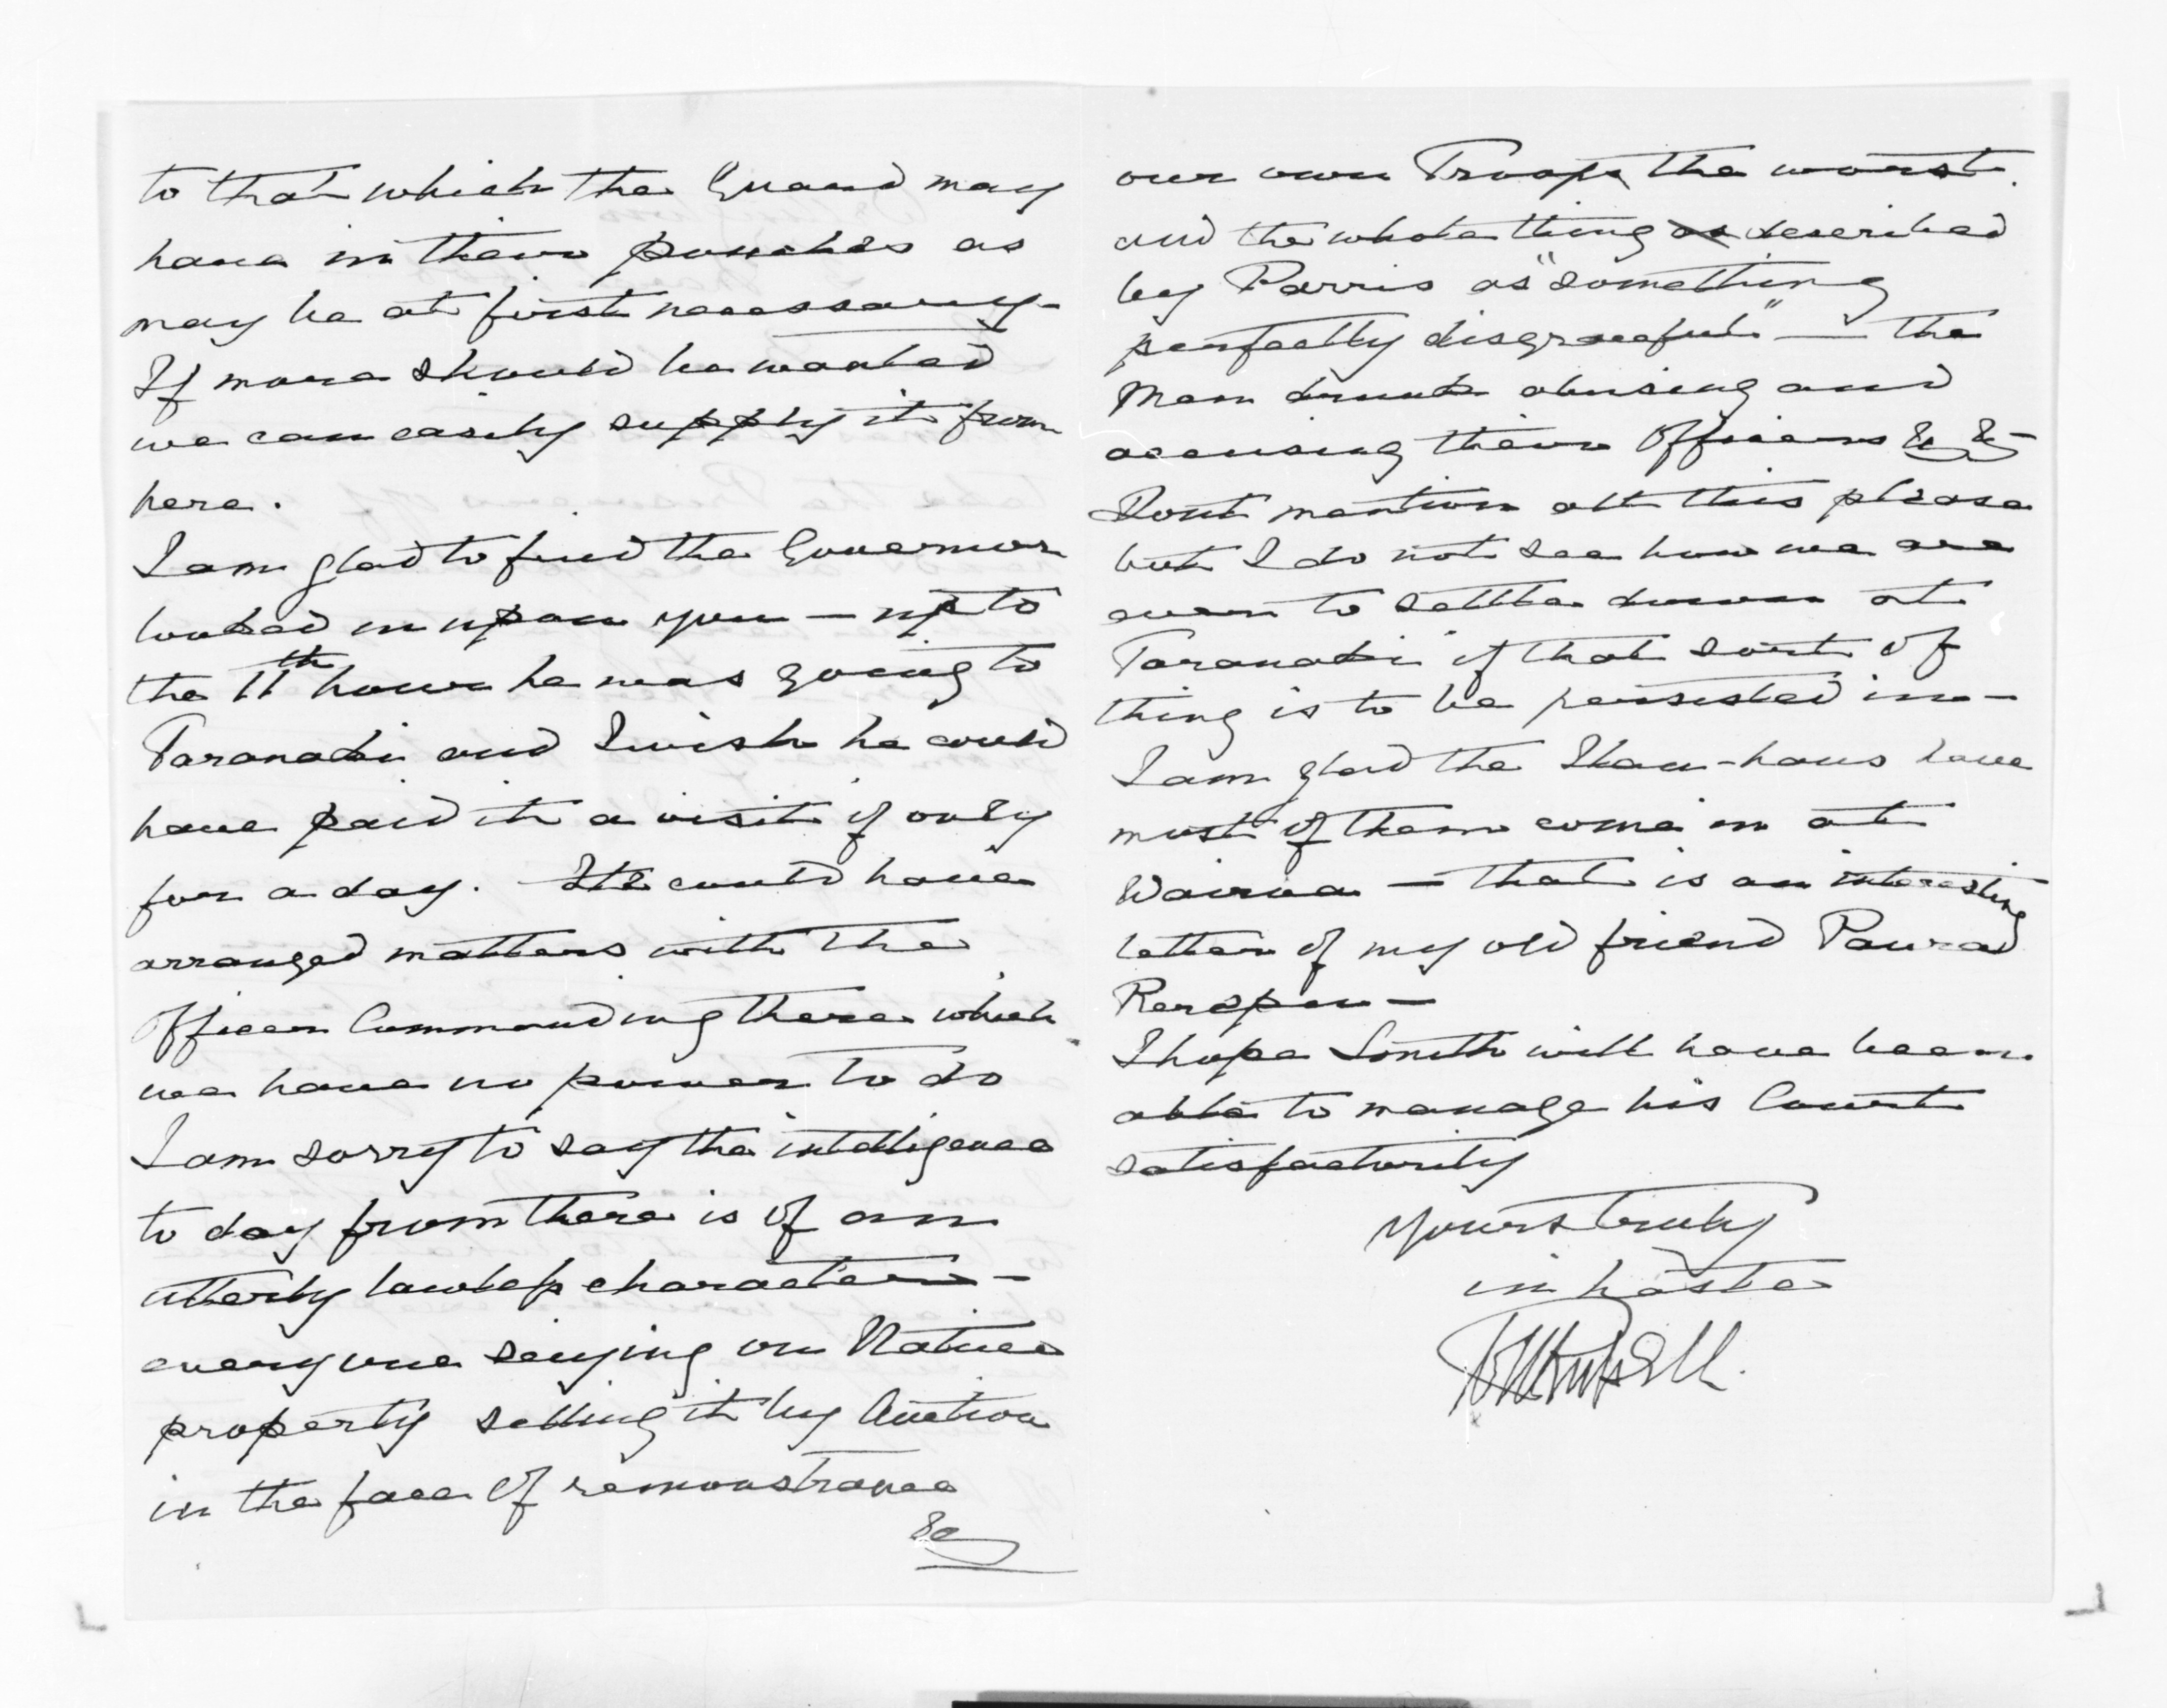 to that which the Guard may
have in their pouches as
may be at first necessary -
If more should be wanted
we can easily supply it from
here.
I am glad to find the Governor
looked in upon you - up to
the 11th hour he was going to
Taranaki and I wish he could
have paid it a visit if only
for a day. He could have
arranged matters with the
Officer Commanding there which
we have no power to do
I am sorry to say the intelligence
to day from there is of an
utterly lawless character -
every one seizing on Native
property selling it by Auction
in the face of remonstrance
&c
our own Troops the worst.
and the whole thing as described
by Parris as "something
perfectly disgraceful" — the
Men drunk abusing and
accusing their Officers &c &c -
Dont mention all this please
but I do not see how we are
ever to settle down at
Taranaki if that sort of
thing is to be persisted in -
I am glad the Hau-haus have
most of them come in at
Wairoa — that is an interesting
letter of my old friend
I hope Smith will have been
able to manage his Court
satisfactorily
Yours truly
in haste